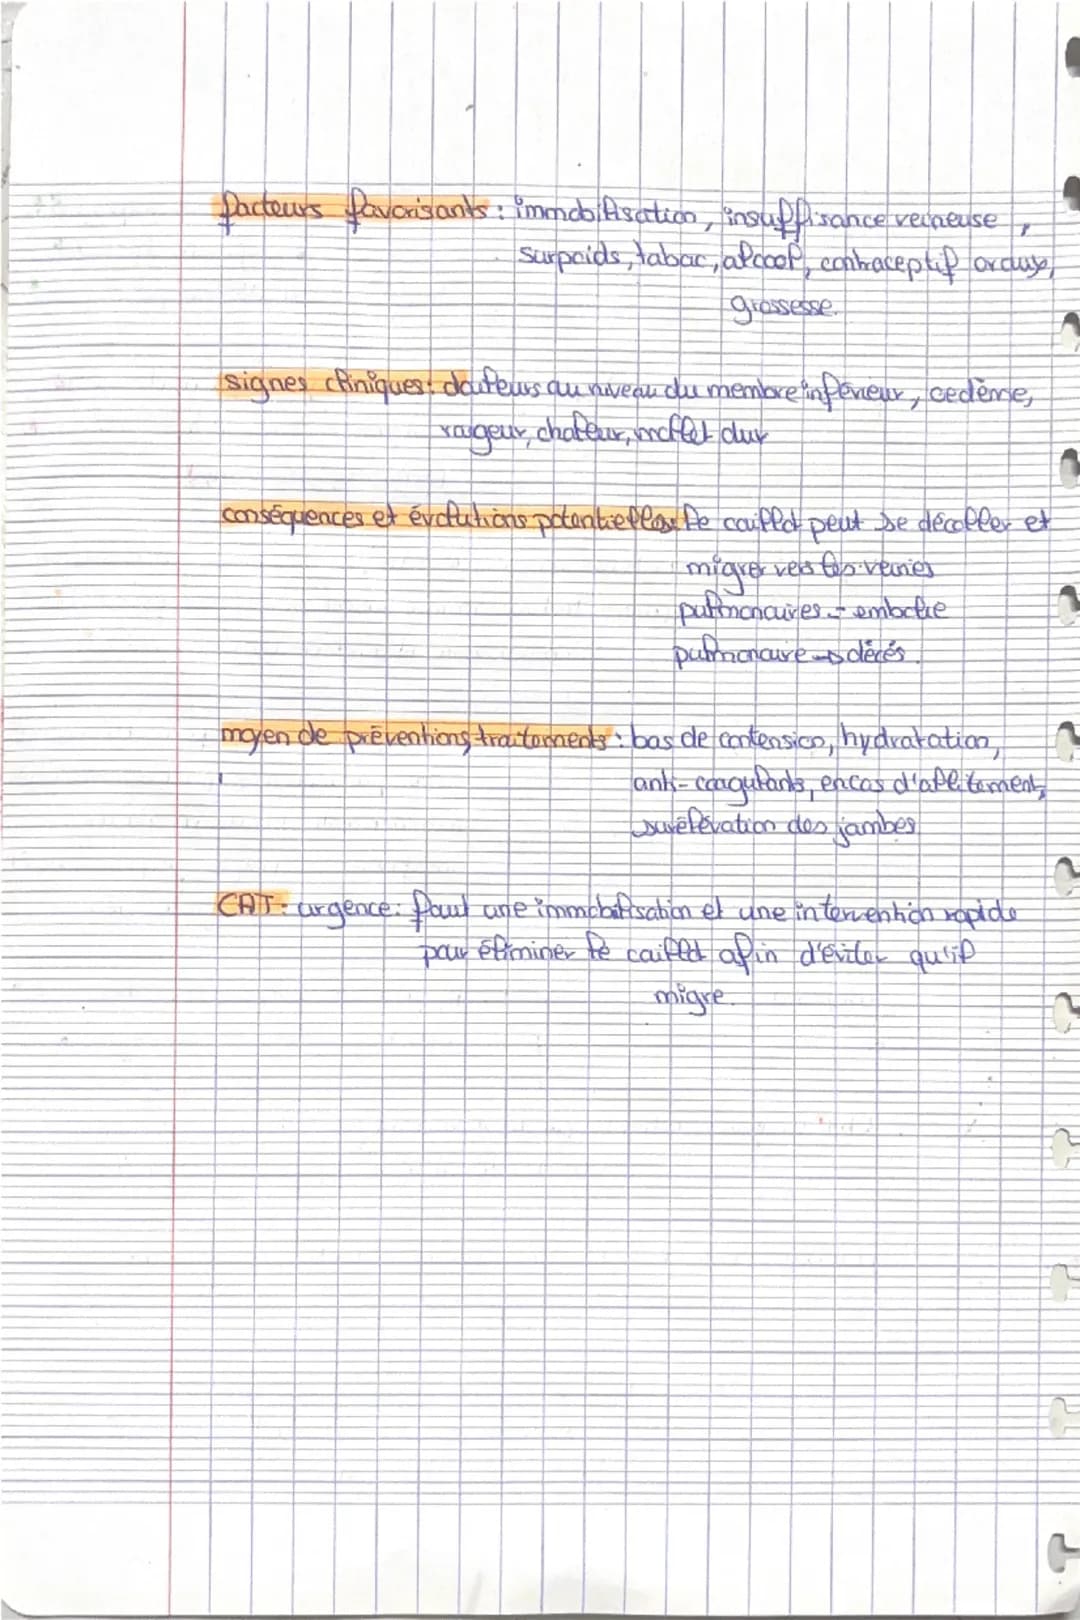 facteurs favorisants : immobilisation, insuffisance veineuse,
surpoids, tabac, alcool, contraceptif oraux,
grossesse.
signes cliniques : douleurs au niveau du membre inférieur, oedème,
rougeur, chaleur, mollet dur
conséquences et évolutions potentielles : le caillot peut se décoller et
migrer vers les veines
pulmonaires → embolie
pulmonaire → décès.
moyen de préventions, traitements : bas de contension, hydratation,
anti-coagulants, en cas d'alitement,
surélévation des jambes
CAT : urgence : faut une immobilisation et une intervention rapide
pour éliminer le caillot afin d'éviter qu'il
migre.